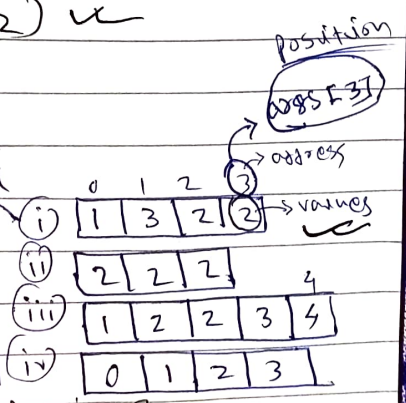 2)
position
args[3]
→ address
0 1 2 3
i) 1 3 2 2 → values
ii) 2 2 2
4
iii) 1 2 2 3 4
iv) 0 1 2 3